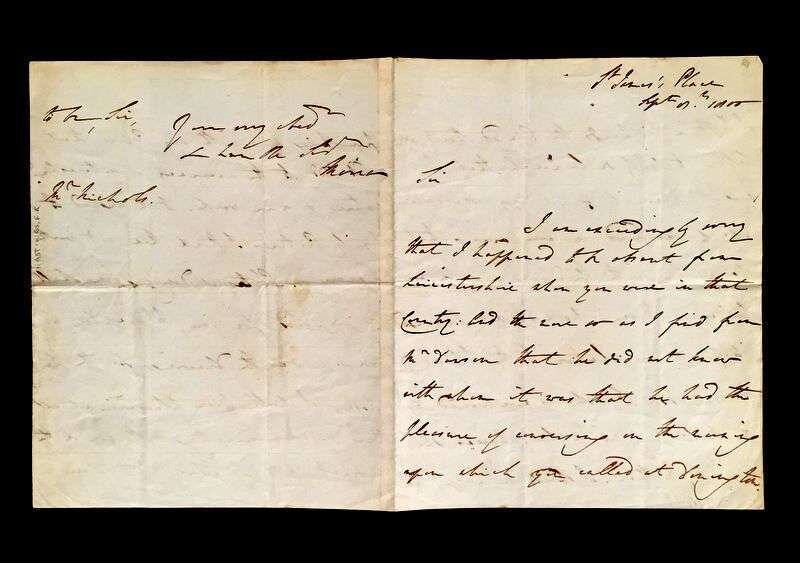 to be, Sir,
Your very obed.t
& hum ble Ser.t
Moira
Mr. Nichols.
St James's Place
Sept. 1800
Sir
I am exceedingly sorry
that I happened to be absent from
Leicestershire when you were in that
County: And the more so as I find from
Mr. Dawson that he did not know
with whom it was that he had the
pleasure of conversing on the morning
upon which you called at Donington.